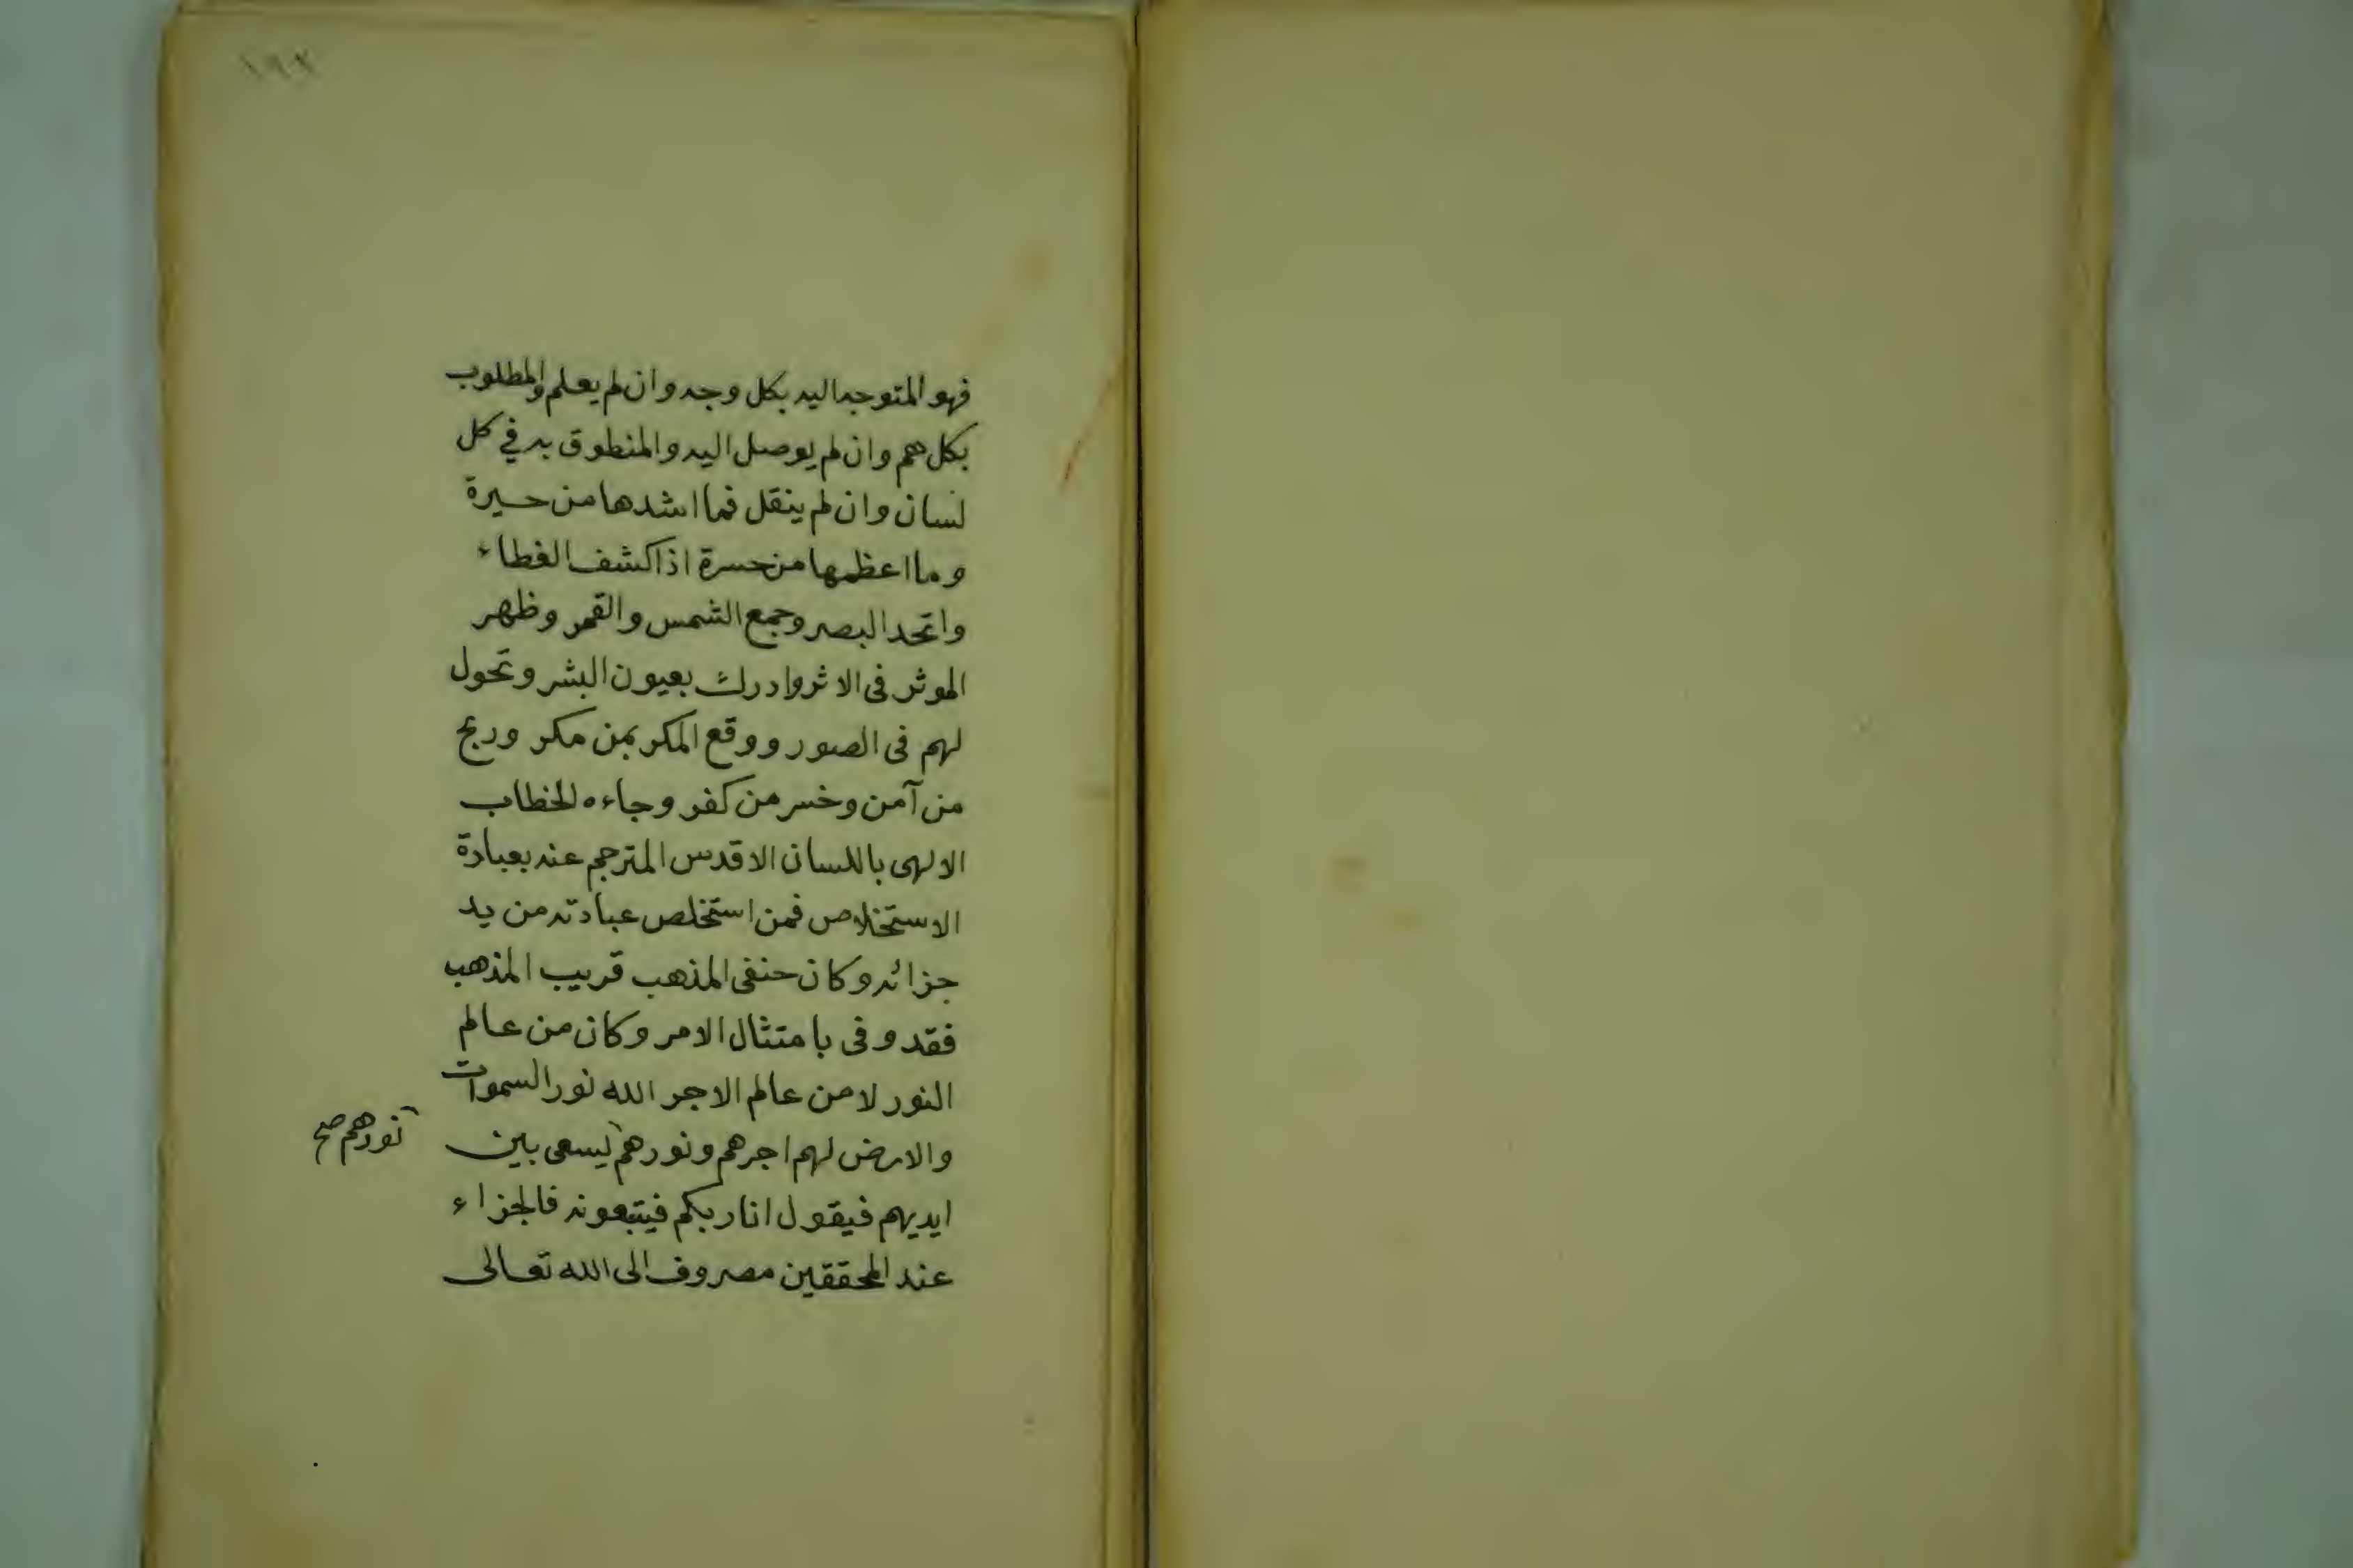 ١٩٢
فهو المتوجه اليه بكل وجه وان لم يعلم والمطلوب
بكل هم وان لم يوصل اليه والمنطوق به في كل
لسان وان لم ينقل فما اشدها من حيرة
وما اعظمها من حسرة اذا كشف الغطاء
واتحد البصر وجمع الشمس والقمر وظهر
الموثر فى الاثر وادرك بعيون البشر وتحول
لهم فى الصور ووقع المكر بمن مكر وربح
من آمن وخسر من كفر وجاءه الخطاب
الالهى باللسان الاقدس المترجم عنه بعبادة
الاستخلاص فمن استخلص عبادته من يد
جزائه وكان حنفى المذهب قريب المذهب
فقد وفى بامتثال الامر وكان من عالم
النور لا من عالم الاجر الله نور السموات
والارض لهم اجرهم ونورهم يسعى بين
نورهم صح
ايديهم فيقول انا ربكم فيتبعونه فالجزاء
عند المحققين مصروف الى الله تعالى